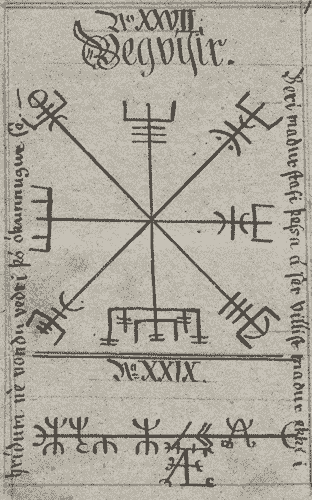 No. XXVII.
Vegvisir.
Beri madur stafi þessa á sér villist madur ekki i
hridum né vondu vedri þó ókunnugur sé.
No. XXIX.